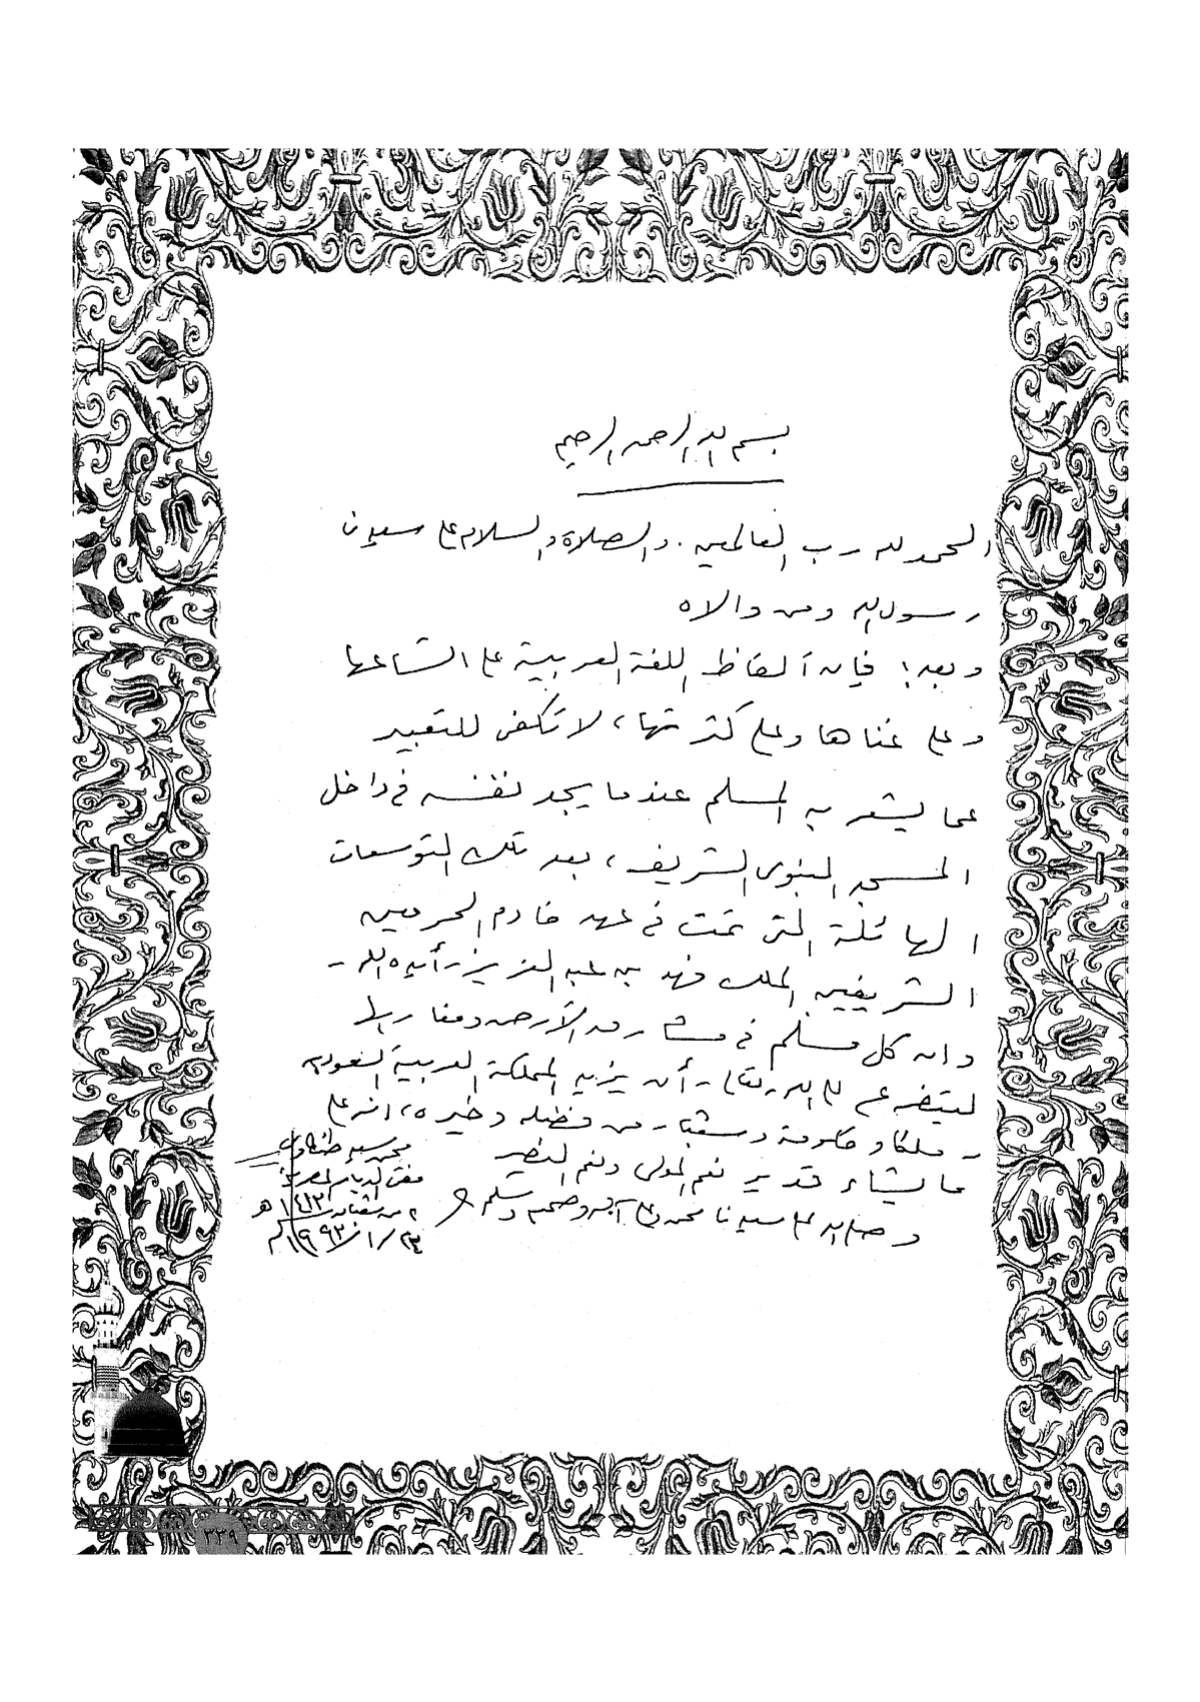 بسم الله الرحمن الرحيم
الحمد لله رب العالمين . والصلاة والسلام على سيدنا
رسول الله ومن والاه
وبعد : فإن ألفاظ اللغة العربية على اتساعها
وعلى غناها وعلى كثرتها ، لا تكفى للتعبير
عما يشعر به المسلم عندما يجد نفسه فى داخل
المسجد النبوى الشريف ، بعد تلك التوسعات
الهائلة التى تمت فى عهد خادم الحرمين
الشريفين الملك فهد بن عبد العزيز - أيده الله -
وان كل مسلم فى مشارق الأرض ومغاربها
ليتضرع إلى الله - تعالى - أن يزيد المملكة العربية السعودية
- ملكا وحكومة وشعبا - من فضله وخيره ، انه على
ما يشاء قدير نعم المولى ونعم النصير
وصلى الله على سيدنا محمد وعلى آله وصحبه وسلم
محمد سيد طنطاوى
مفتى الديار المصرية
٢ من شعبان ١٤١٣ هـ
٢٤ / ١ / ١٩٩٣ م
٣٣٩